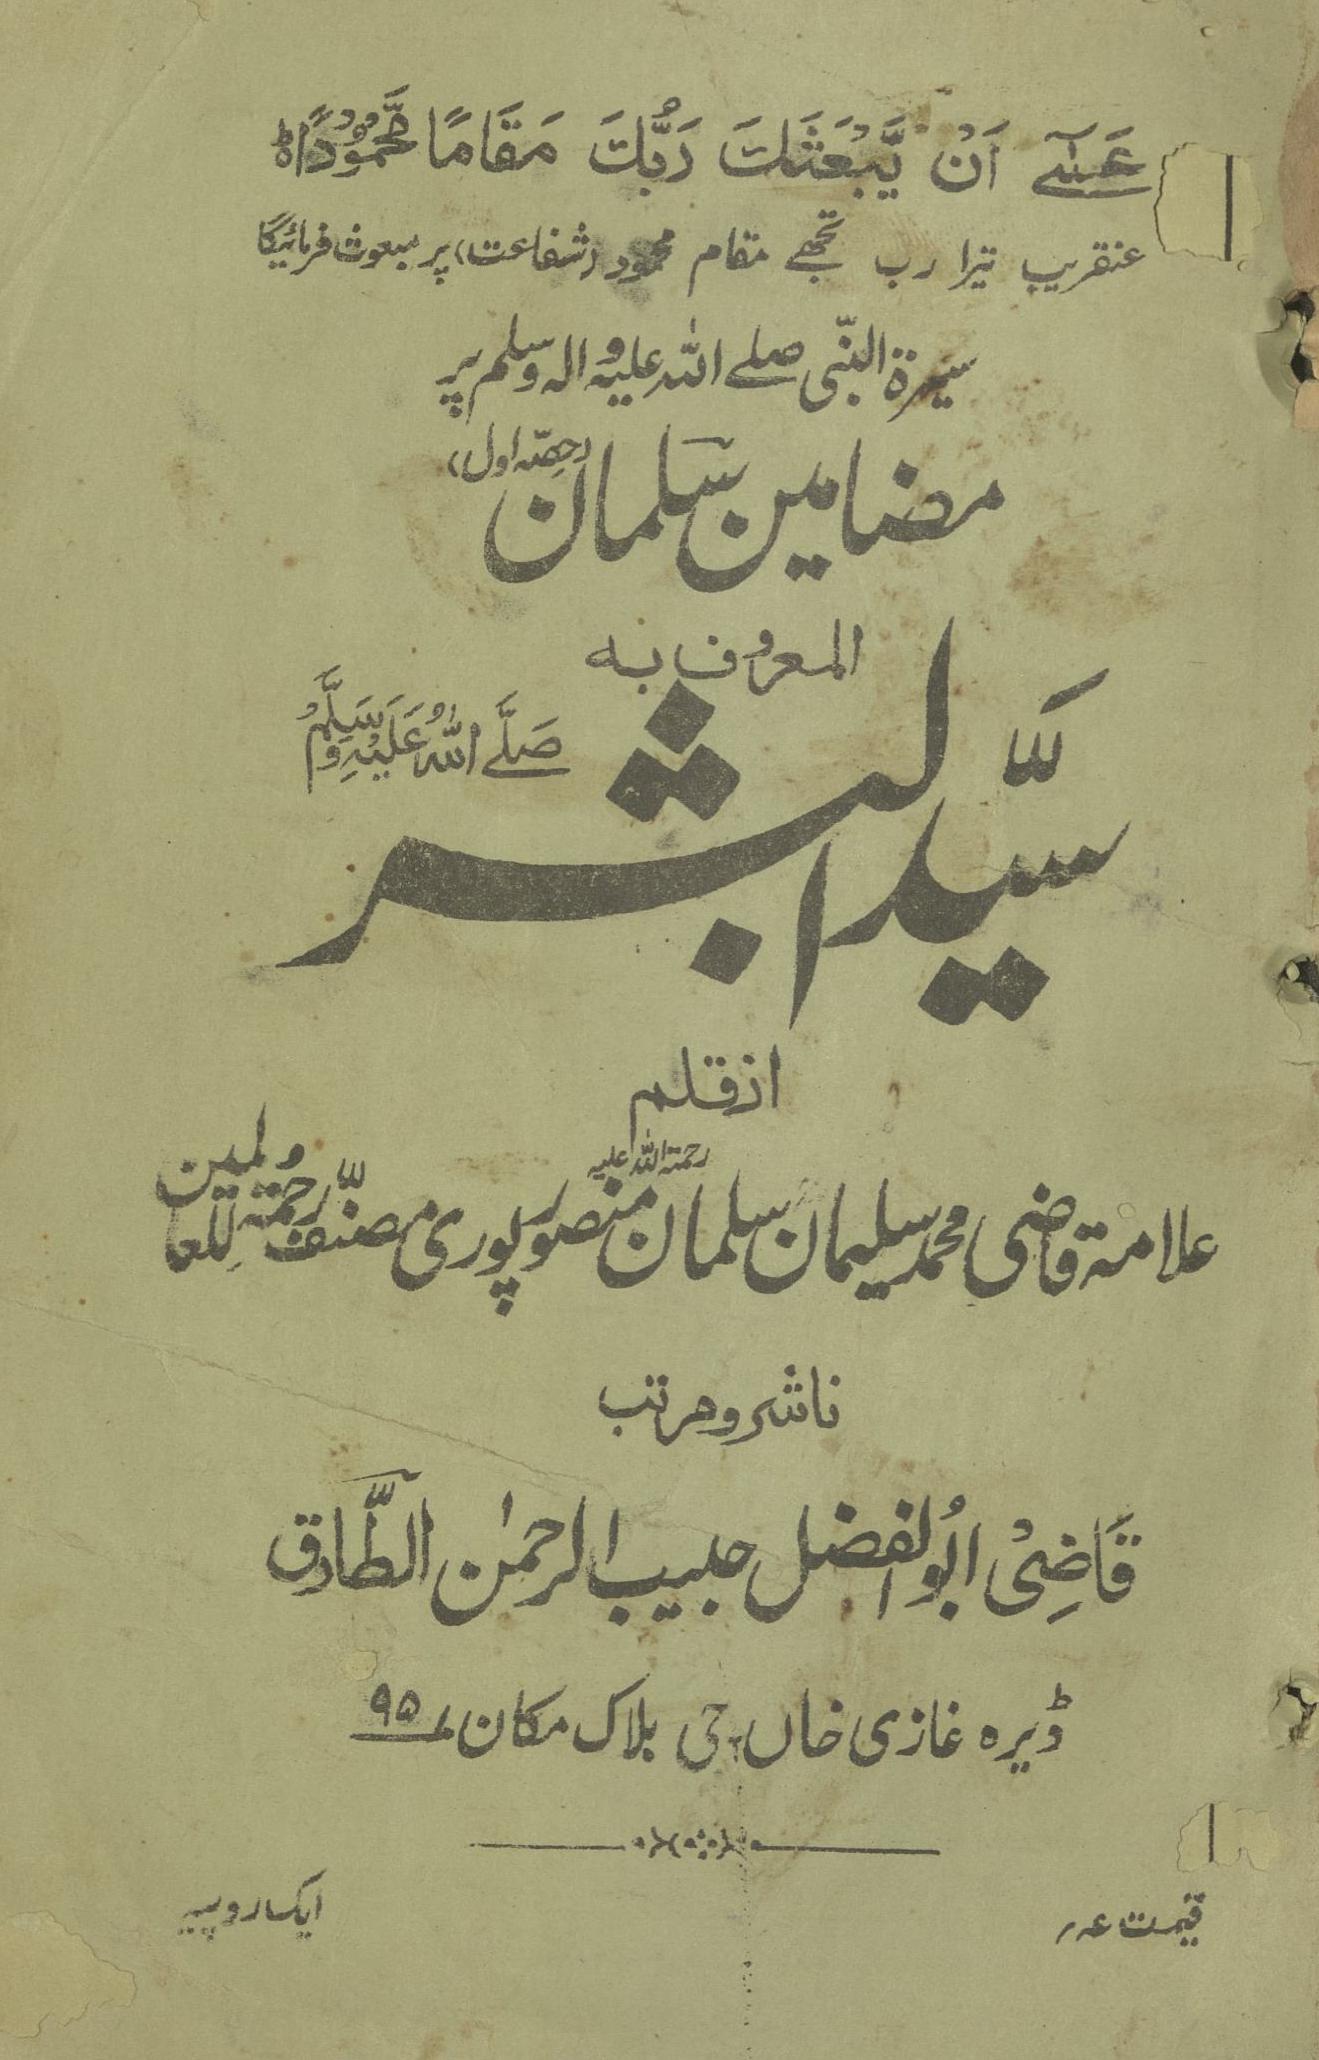 عَسٰٓے اَنْ یَّبْعَثَکَ رَبُّکَ مَقَامًا مَّحْمُوْدًا ط
عنقریب تیرا رب تجھے مقام محمود (شفاعت) پر مبعوث فرمائیگا
سیرۃ النبّی صلے اللہ علیہ والہ وسلم پر
مضامین سلمان (حصّہ اول)
المعروف بہ
سیّد البشر صَلَّے اللّٰہُ عَلَیْہِ وَسَلَّمْ
از قلم
علامۃ قاضی محمد سلیمان سلمان منصورپوری رحمۃ اللہ علیہ مصنّف رحمۃ للعالمین
ناشر و مرتب
قَاضِیْ ابُو الفضل حبیب الرحمٰن الطّارق
ڈیرہ غازی خاں جی بلاک مکان ۹۵
قیمت عہ؍ ایک روپیہ